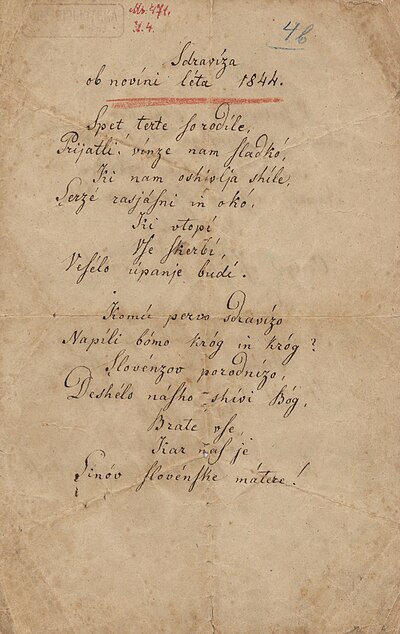 Ms. 471,
I. 4.
4b
Sdravíza
ob novíni léta 1844.
Spet terte so rodíle,
Prijatli! vínze nam sladkó,
Ki nam oshivlja shile,
Serzé rasjásni in okó,
Ki vtopí
Vse skerbí,
Vesélo úpanje budí.
Komú pervo sdravízo
Napíli bómo króg in króg?
Slovénzov porodnízo,
Deshélo násho shivi Bóg,
Brate vse,
Kar nas je
Sinóv slovénske mátere!